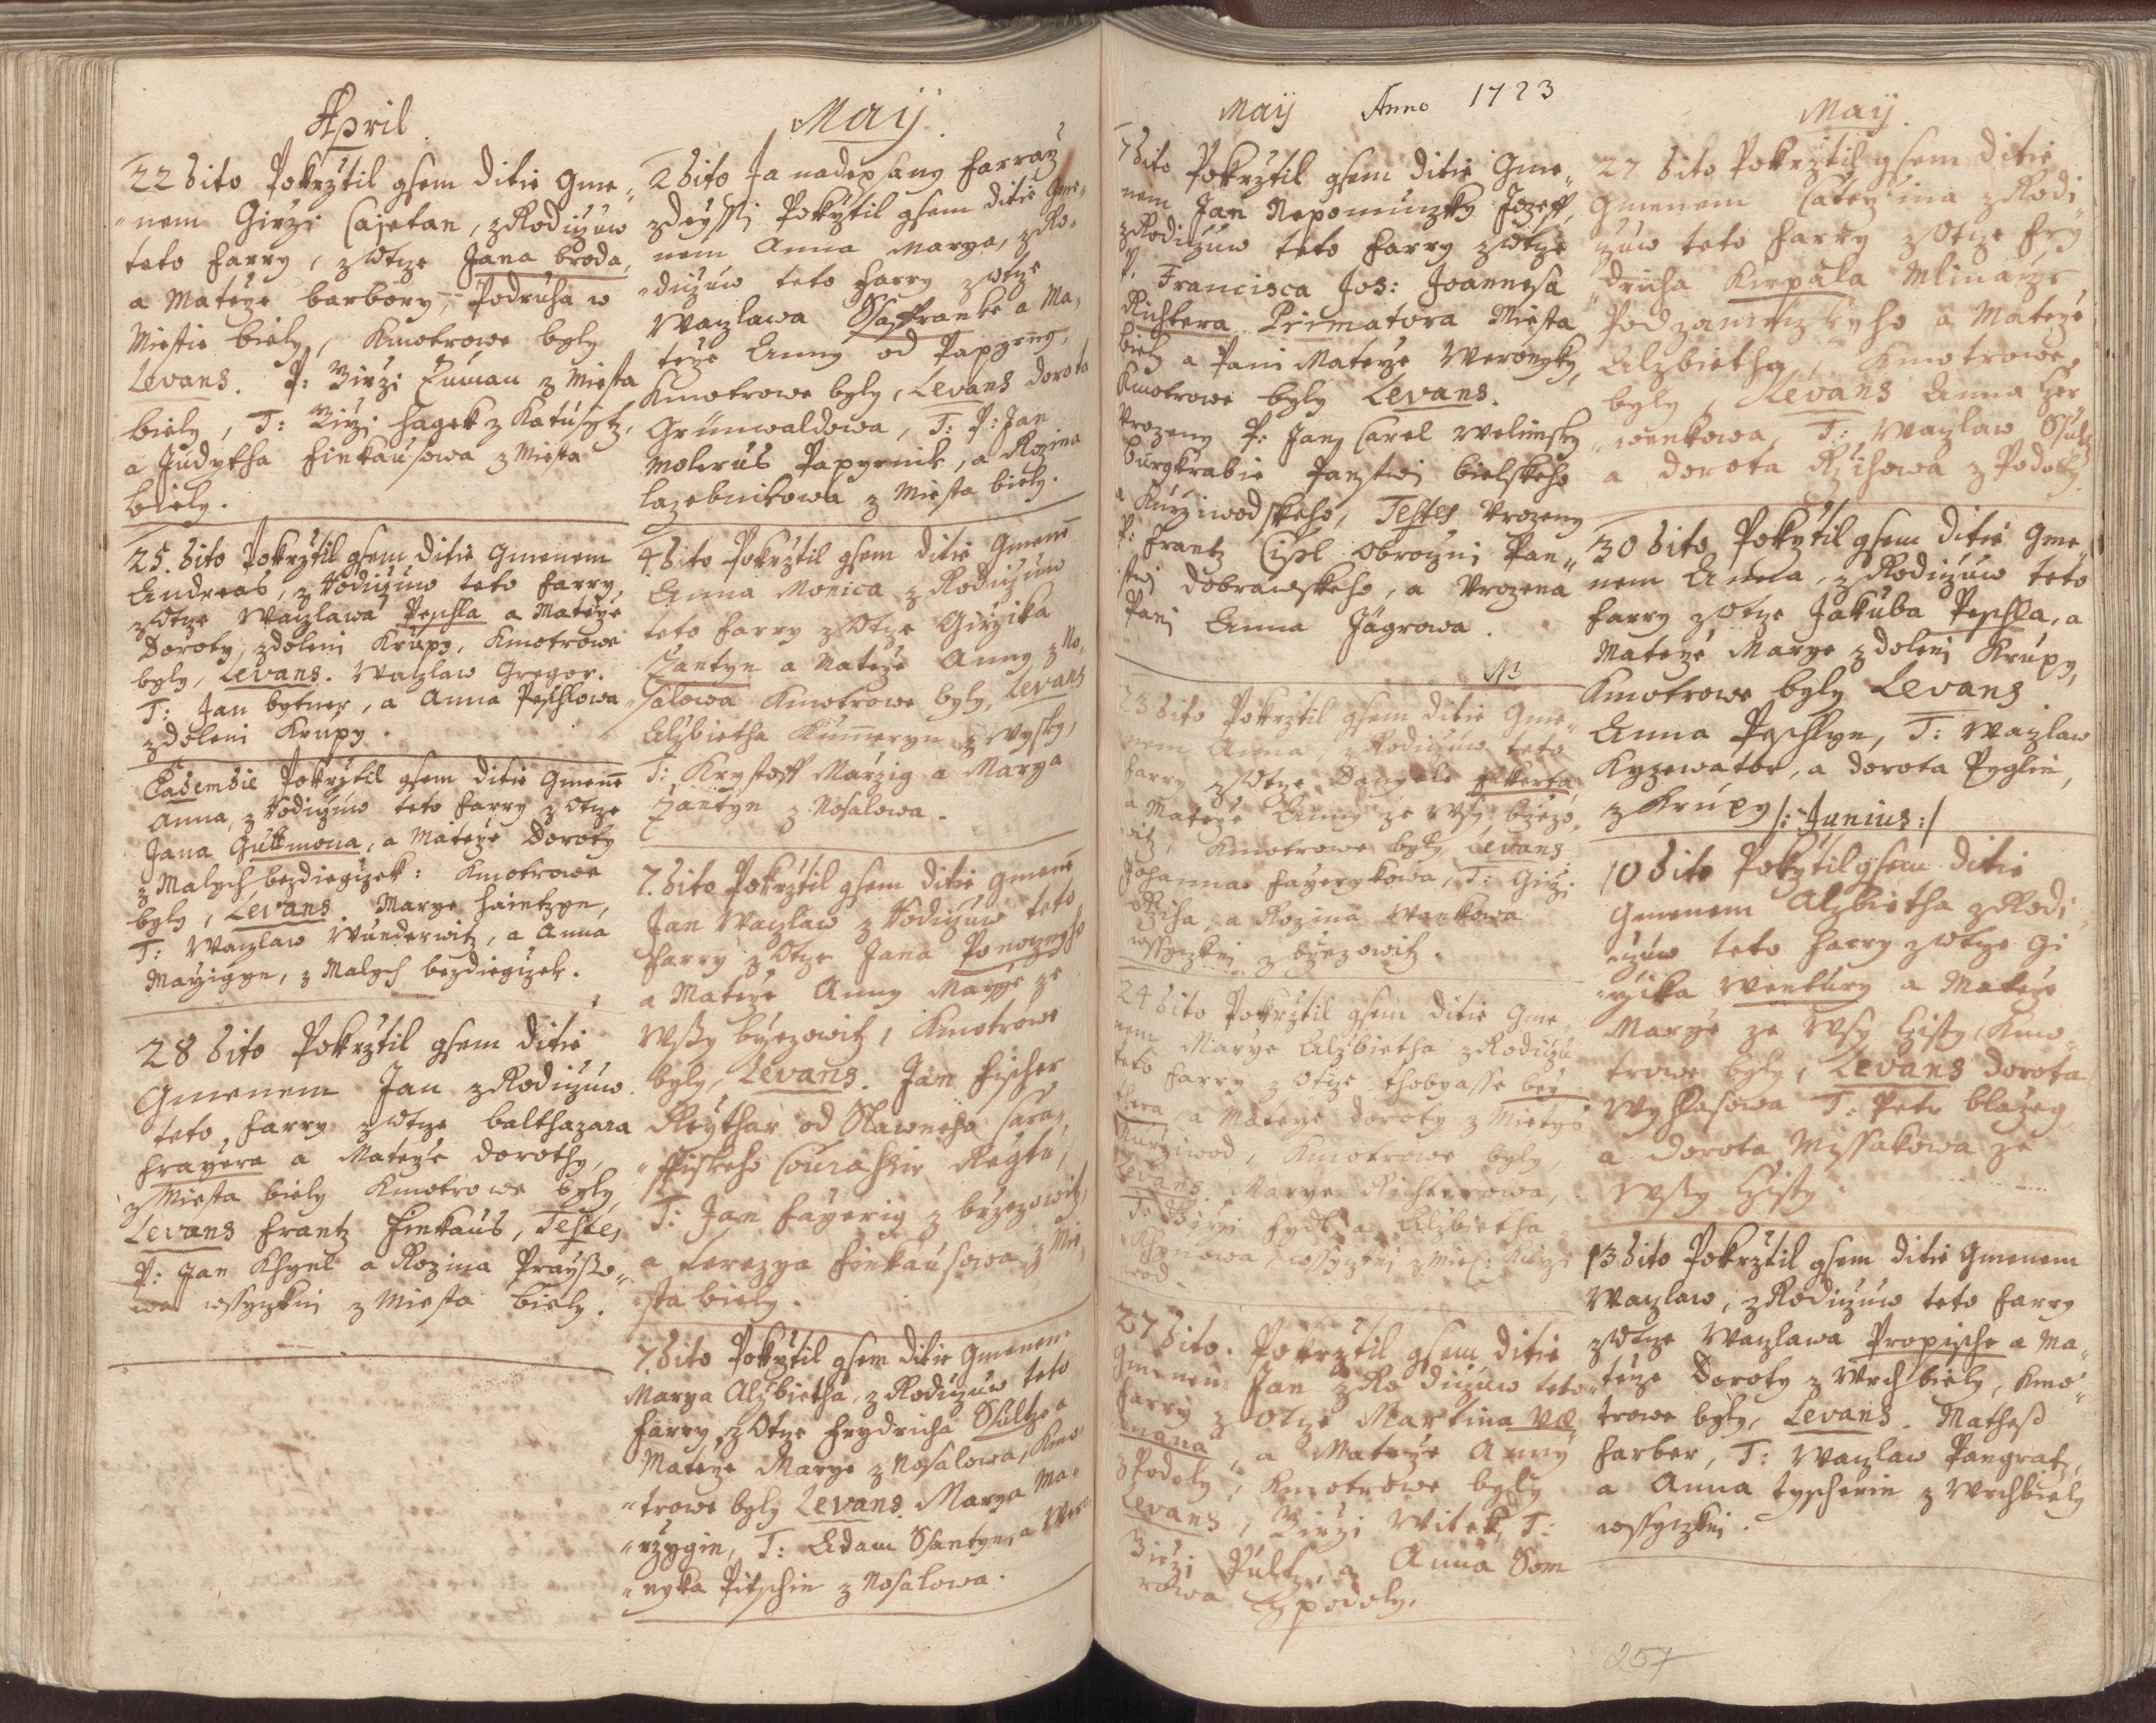 April
22 dito Pokrztil gsem ditie Gme„
„nem Girzi Cajetan, z Rodiczuw
teto farry, z Otcze Jana broda,
a Mateże barbory, Podruha w
Miestie biely, Kmotrowe byly
Levans. P: Birzi Zuman z Miesta
biely, T: Girzi Hagek z Katusytz,
a Judytha Finkausowa z Miesta
biely.
25. dito Pokrztil gsem ditie Gmenem
Andreas, z Rodiczuw teto farry,
z Otcze Waczlawa Peschla a Mateże
Doroty, z doleni Krupy, Kmotrowe
byly, Levans. Waczlaw Gregor.
T: Jan bytner, a Anna Peschlowa
z doleni Krupy.
Eademdie Pokrztil gsem ditie Gmene
Anna, z Rodiczuw teto farry z Otcze
Jana Guttmona, a Mateże Doroty
z Malych bezdiegizek: Kmotrowe
byly, Levans. Marye Haintzyn,
T: Waczlaw Wunderwitz, a Anna
Mayzigyn, z Malych bezdiegizek.
28 dito Pokrztil gsem ditie
Gmenem Jan z Rodiczuw
teto farry z Otcze balthazara
frayera a Mateże dorothy,
z Miesta biely Kmotrowe byly,
Levans Frantz Finkaus, Testes
P: Jan Khynl a Rozina Praysso„
wa wssyczkni z Miesta biely.
Maij.
2 dito Ja nadepsany farrarz
zdeyssj Pokrztil gsem ditie Gme„
nem Anna Marya, z Ro„
„diczuw teto farry z Otcze
Waczlawa Schaffranke a Ma„
teże Anny od Papyrny,
Kmotrowe byly, Levans dorota
Grünwaldowa, T: P: Jan
Molerus Papyrnik, a Rozina
lazebnikowa z Miesta biely.
4 dito Pokrztil gsem ditie Gmene
Anna Monica z Rodiczuw
teto farry z Otcze Girzika
Zantyn a Mateże Anny z No„
„salowa Kmotrowe byly, Levans
Alzbietha Kummeryn z Wysky,
T: Krystoff Marzig a Marya
Zantyn z Nosalowa.
7. dito Pokrztil gsem ditie Gmene
Jan Waczlaw z Rodiczuw teto
farry z Otcze Jana Ponoczneho
a Mateże Anny Marye ze
Wssy brzezowitz, Kmotrowe
byly, Levans. Jan Fischer
Reythar od Slawneho Cara„
„ffiskeho Courassir Regtu,
T: Jan Fayerig z brzezowitz,
a Terezya Finkausowa z Mie„
„sta biely.
7. dito Pokrztil gsem ditie Gmenem
Marya Alzbietha, z Rodiczuw teto
farry z Otcze Frydricha Sultze a
Mateże Marye z Nosalowa, Kmo„
„trowe byly Levans. Marya Ma„
„rzygin, T: Adam Ssantyn, a Wero„
„nyka Pitschin z Nosalowa.
Maij Anno 1723
7 dito Pokrztil gsem ditie Gme„
nem Jan Nepomuczky Jozeff,
z Rodiczuw teto farry z Otcze
P. Francisca Jos: Joannesa
Richtera Primatora Miesta
biely a Pani Mateże Weronyky,
Kmotrowe byly Levans.
Urozeny P: Jan Carel Welimsky
Burgkrabie Panstwi bielskeho
a Kurziwodskeho, Testes Urozeny
P: Frantz Cissl obroczni Pan„
stwj dobrawskeho, a Urozena
Panj Anna Jägrowa.
NB
23 dito Pokrztil gsem ditie Gme„
nem Anna, z Rodiczuw teto
farry z Otcze Danyele Ekerta,
a Mateże Anny ze Wsy brzezo„
witz, Kmotrowe byly Levans
Johanna Fayerykowa, T: Girzi
Rziha, a Rozina Wankowa
wssyczkni z brzezowitz.
24 dito Pokrztil gsem ditie Gme„
nem Marye Alzbietha z Rodiczu
teto farry z Otcze thobyasse bey„
era, a Mateże doroty z Miesta
Kurziwod, Kmotrowe byly,
Levans Marye Richterowa,
T: Birzi Fydl a Alzbietha
Khynowa wssyczkni z Mies: Kurzi
wod.
27 dito. Pokrztil gsem ditie
Gmenem Jan z Rodiczuw teto
farry z Otcze Martina Va„
„mana, a Mateże Anny
z Podoly, Kmotrowe byly
Levans, Birzi Witek, T:
Birzi Pultz, a Anna Som
rowa z podoly.
Maij.
27 dito Pokrztil gsem ditie
Gmenem Caterzina z Rodi„
czuw teto farry z Otcze Fry
„dricha Kirpala Mlinarze
Podzamczkyho a Mateże
Alzbiethy, Kmotrowe
byly, Levans Anna Her
„wenkowa, T: Waczlaw Sultz
a dorota Rzihowa z Podoly.
30 dito Pokrztil gsem ditie Gme„
nem Anna, z Rodiczuw teto
farry z Otcze Jakuba Peschla, a
Mateże Marye z doleni Krupy,
Kmotrowe byly Levans
Anna Peschlyn, T: Waczlaw
Kyzewatr, a dorota Pyglin,
z Krupy /: Junius :/
10 dito Pokrztil gsem ditie
Gmenem Alzbietha z Rodi„
„czuw teto farry z Otcze Gi
„rzika Wentury a Mateże
Marye ze Wsy Czisty, Kmo„
trowe byly, Levans dorota
Wyhlasowa T: Petr blażeg,
a dorota Missakowa ze
Wsy Czisty.
13 dito Pokrztil gsem ditie Gmenem
Waczlaw, z Rodiczuw teto farry
z Otcze Waczlawa Propische a Ma„
„teże Doroty z Wrchbiely, Kmo„
trowe byly, Levans. Mathess
Farber, T: Waczlaw Pangratz,
a Anna tyscherin z Wrchbiely
wssyczkni.
257